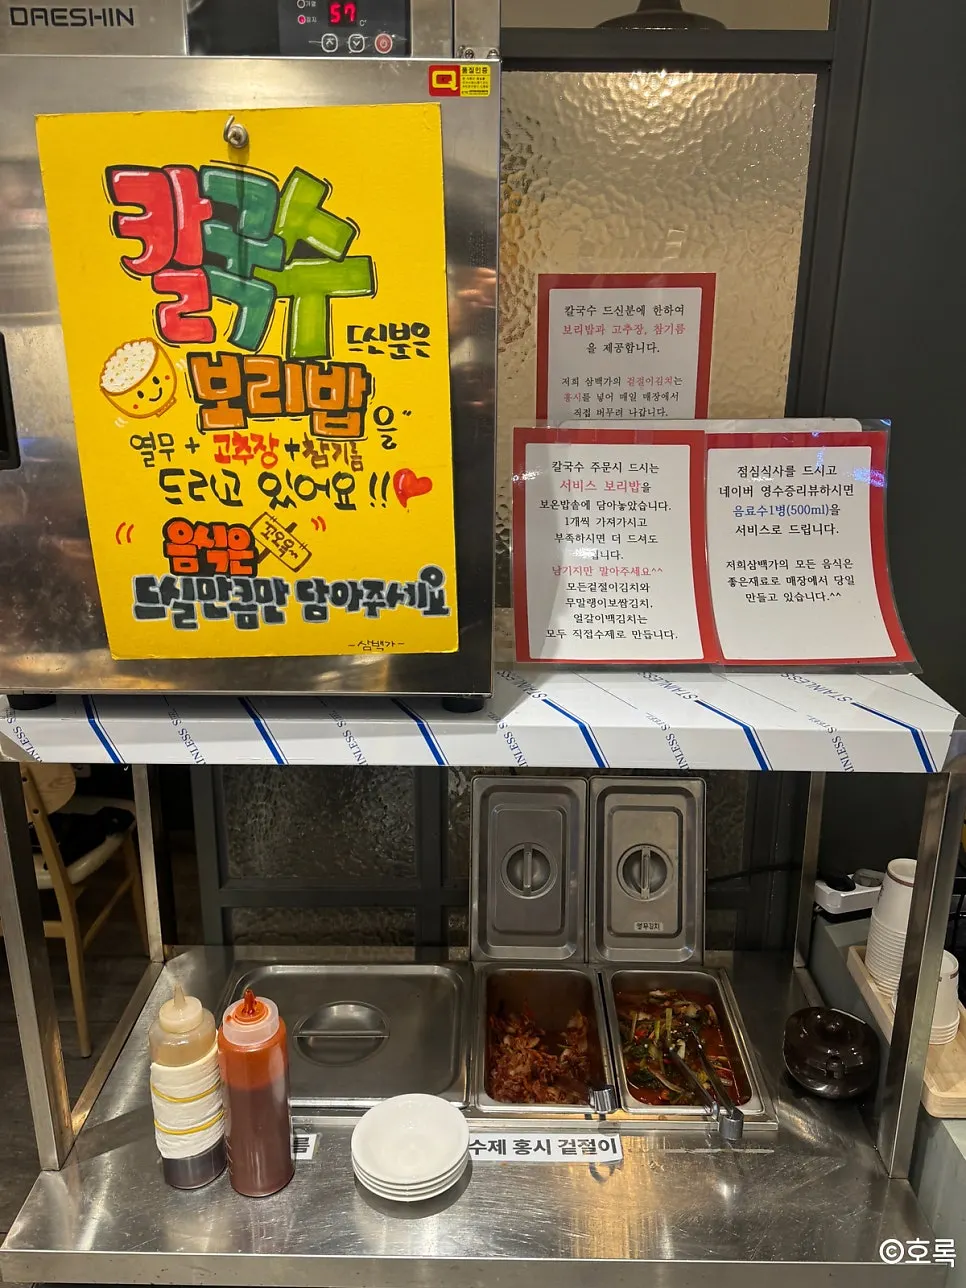 DAESHIN
57
Q 품질인증
칼국수 드신분은
보리밥을
열무 + 고추장 + 참기름
드리고 있어요!!
음식은
드실만큼만 담아주세요
-삼백가-
칼국수 드신분에 한하여
보리밥과 고추장, 참기름
을 제공합니다.
저희 삼백가의 겉절이김치는
홍시를 넣어 매일 매장에서
직접 버무려 나갑니다.
칼국수 주문시 드시는
서비스 보리밥을
보온밥솥에 담아놓았습니다.
1개씩 가져가시고
부족하시면 더 드셔도
됩니다.
남기지만 말아주세요^^
모든겉절이김치와
무말랭이보쌈김치,
얼갈이백김치는
모두 직접수제로 만듭니다.
점심식사를 드시고
네이버 영수증리뷰하시면
음료수1병(500ml)을
서비스로 드립니다.
저희삼백가의 모든 음식은
좋은재료로 매장에서 당일
만들고 있습니다.^^
STAINLESS STEEL
열무김치
름
수제 홍시 겉절이
©호록